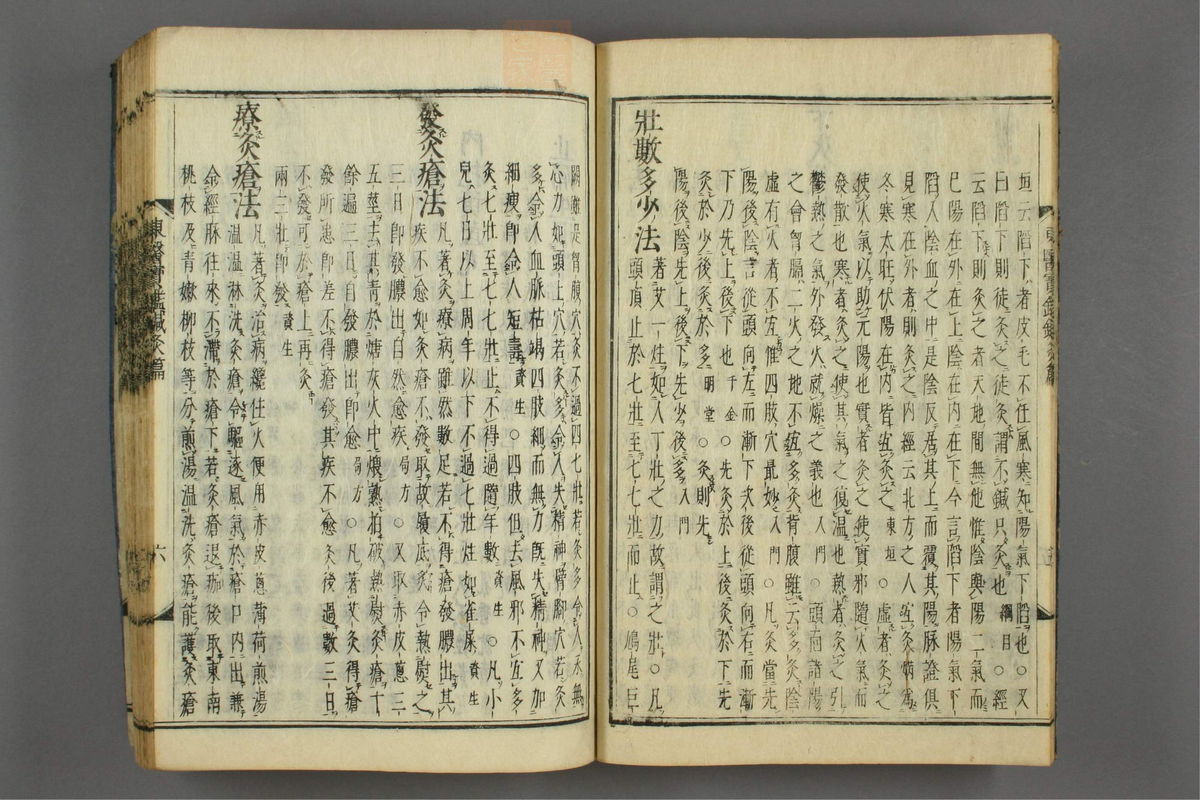 垣云陷下者皮毛不任風寒知陽氣下陷也○又
曰陷下則徒灸之徒灸謂不鍼只灸也綱目○經
云陷下則灸之者天地間無他惟陰與陽二氣而
已陽在外在上陰在內在下今言陷下者陽氣下
陷入陰血之中是陰反居其上而覆其陽脉證俱
見寒在外者則灸之內經云北方之人宜灸焫爲
冬寒太旺伏陽在內皆宜灸之東垣○虛者灸之
使火氣以助元陽也實者灸之使實邪隨火氣而
發散也寒者灸之使其氣之復温也熱者灸之引
鬱熱之氣外發火就燥之義也入門○頭面諸陽
之會胷膈二火之地不宜多灸背腹雖云多灸陰
虛有火者不宜惟四肢穴最妙入門○凡灸當先
陽後陰言從頭向左而漸下次後從頭向右而漸
下乃先上後下也千金○先灸於上後灸於下先
灸於少後灸於多明堂○灸則先
陽後陰先上後下先少後多入門
壯數多少法
著艾一炷如人丁壯之力故謂之壯○凡
頭頂止於七壯至七七壯而止○鳩尾巨
闕雖是胷腹穴灸不過四七壯若灸多令人永無
心力如頭上穴若灸多令人失精神臂脚穴若灸
多令人血脉枯竭四肢細而無力旣失精神又加
細瘦卽令人短壽資生○四肢但去風邪不宜多
灸七壯至七七壯止不得過隨年數資生○凡小
兒七日以上周年以下不過七壯炷如雀屎資生
發灸瘡法
凡著灸療病雖然數足若不得瘡發膿出其
疾不愈如灸瘡不發取故履底灸令熱熨之
三日卽發膿出自然愈疾局方○又取赤皮葱三
五莖去其靑於煻灰火中煨熟拍破熱熨灸瘡十
餘遍三日自發膿出卽愈局方○凡著艾灸得瘡
發所患卽差不得瘡發其疾不愈灸後過數三日
不發可於瘡上再灸
兩三壯卽發資生
療灸瘡法
凡著灸治病纔住火便用赤皮葱薄荷煎湯
温温淋洗灸瘡令驅逐風氣於瘡口內出兼
令經脉往來不滯於瘡下若灸瘡退痂後取東南
桃枝及青嫩柳枝等分煎湯温洗灸瘡能護灸瘡
東醫寶鑑鍼灸篇
六